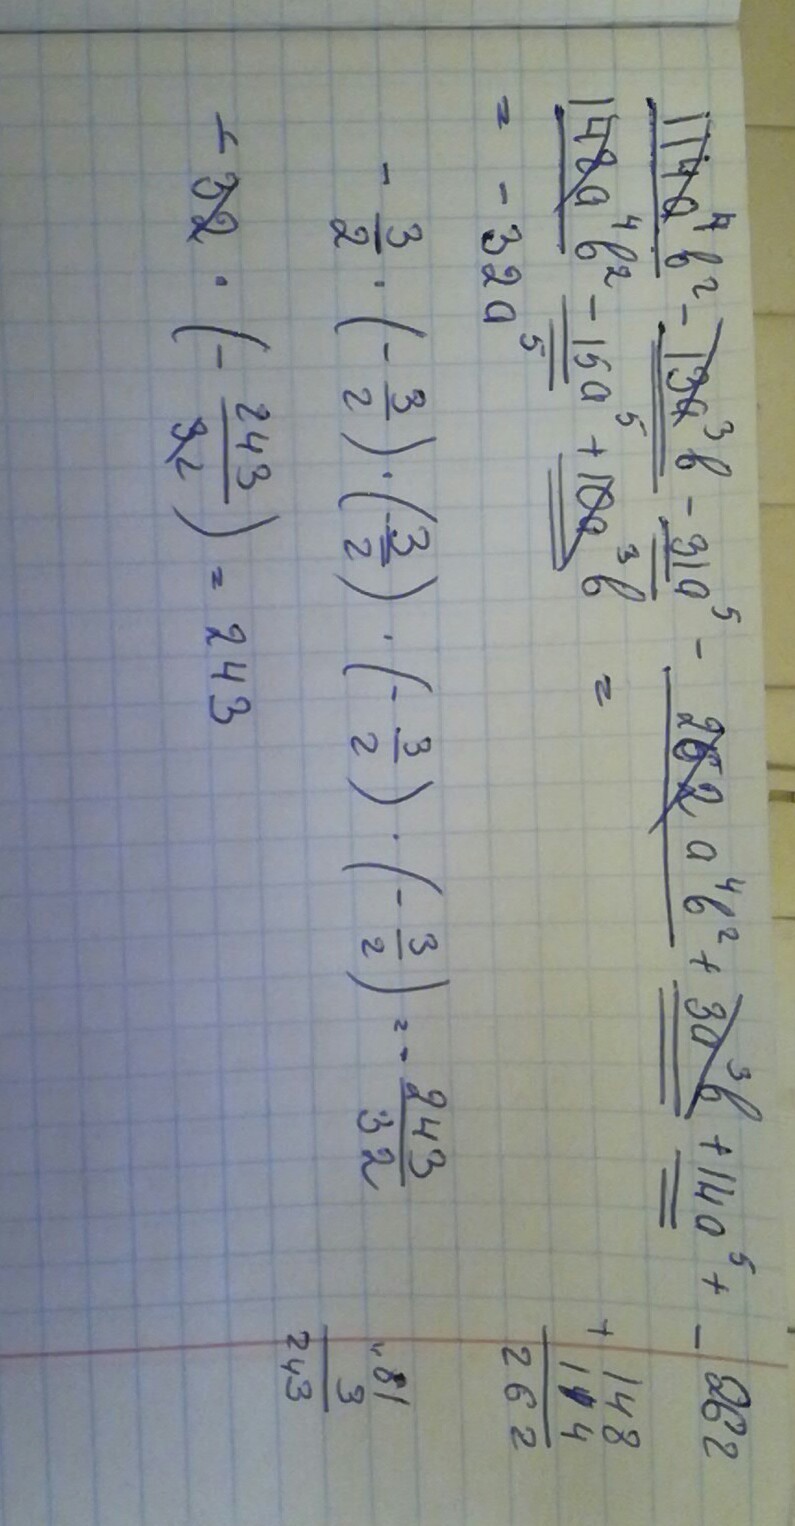 114a⁴b² - 13a³b - 31a⁵ - 262a⁴b² + 3a³b + 14a⁵ +
148a⁴b² - 15a⁵ + 10a³b =
= -32a⁵
-3/2 · (-3/2) · (-3/2) · (-3/2) · (-3/2) = -243/32
-32 · (-243/32) = 243
- 262
+ 148
114
262
×81
3
243